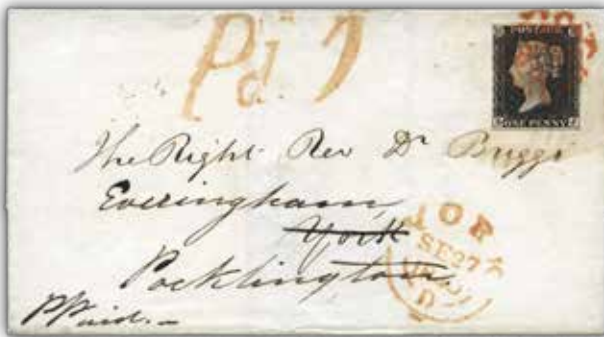 Pd. 1
POSTAGE
ONE PENNY
The Right Rev Dr Briggs
Everingham
York
Pocklington.
YORK
SE 27
D
PPaid.-